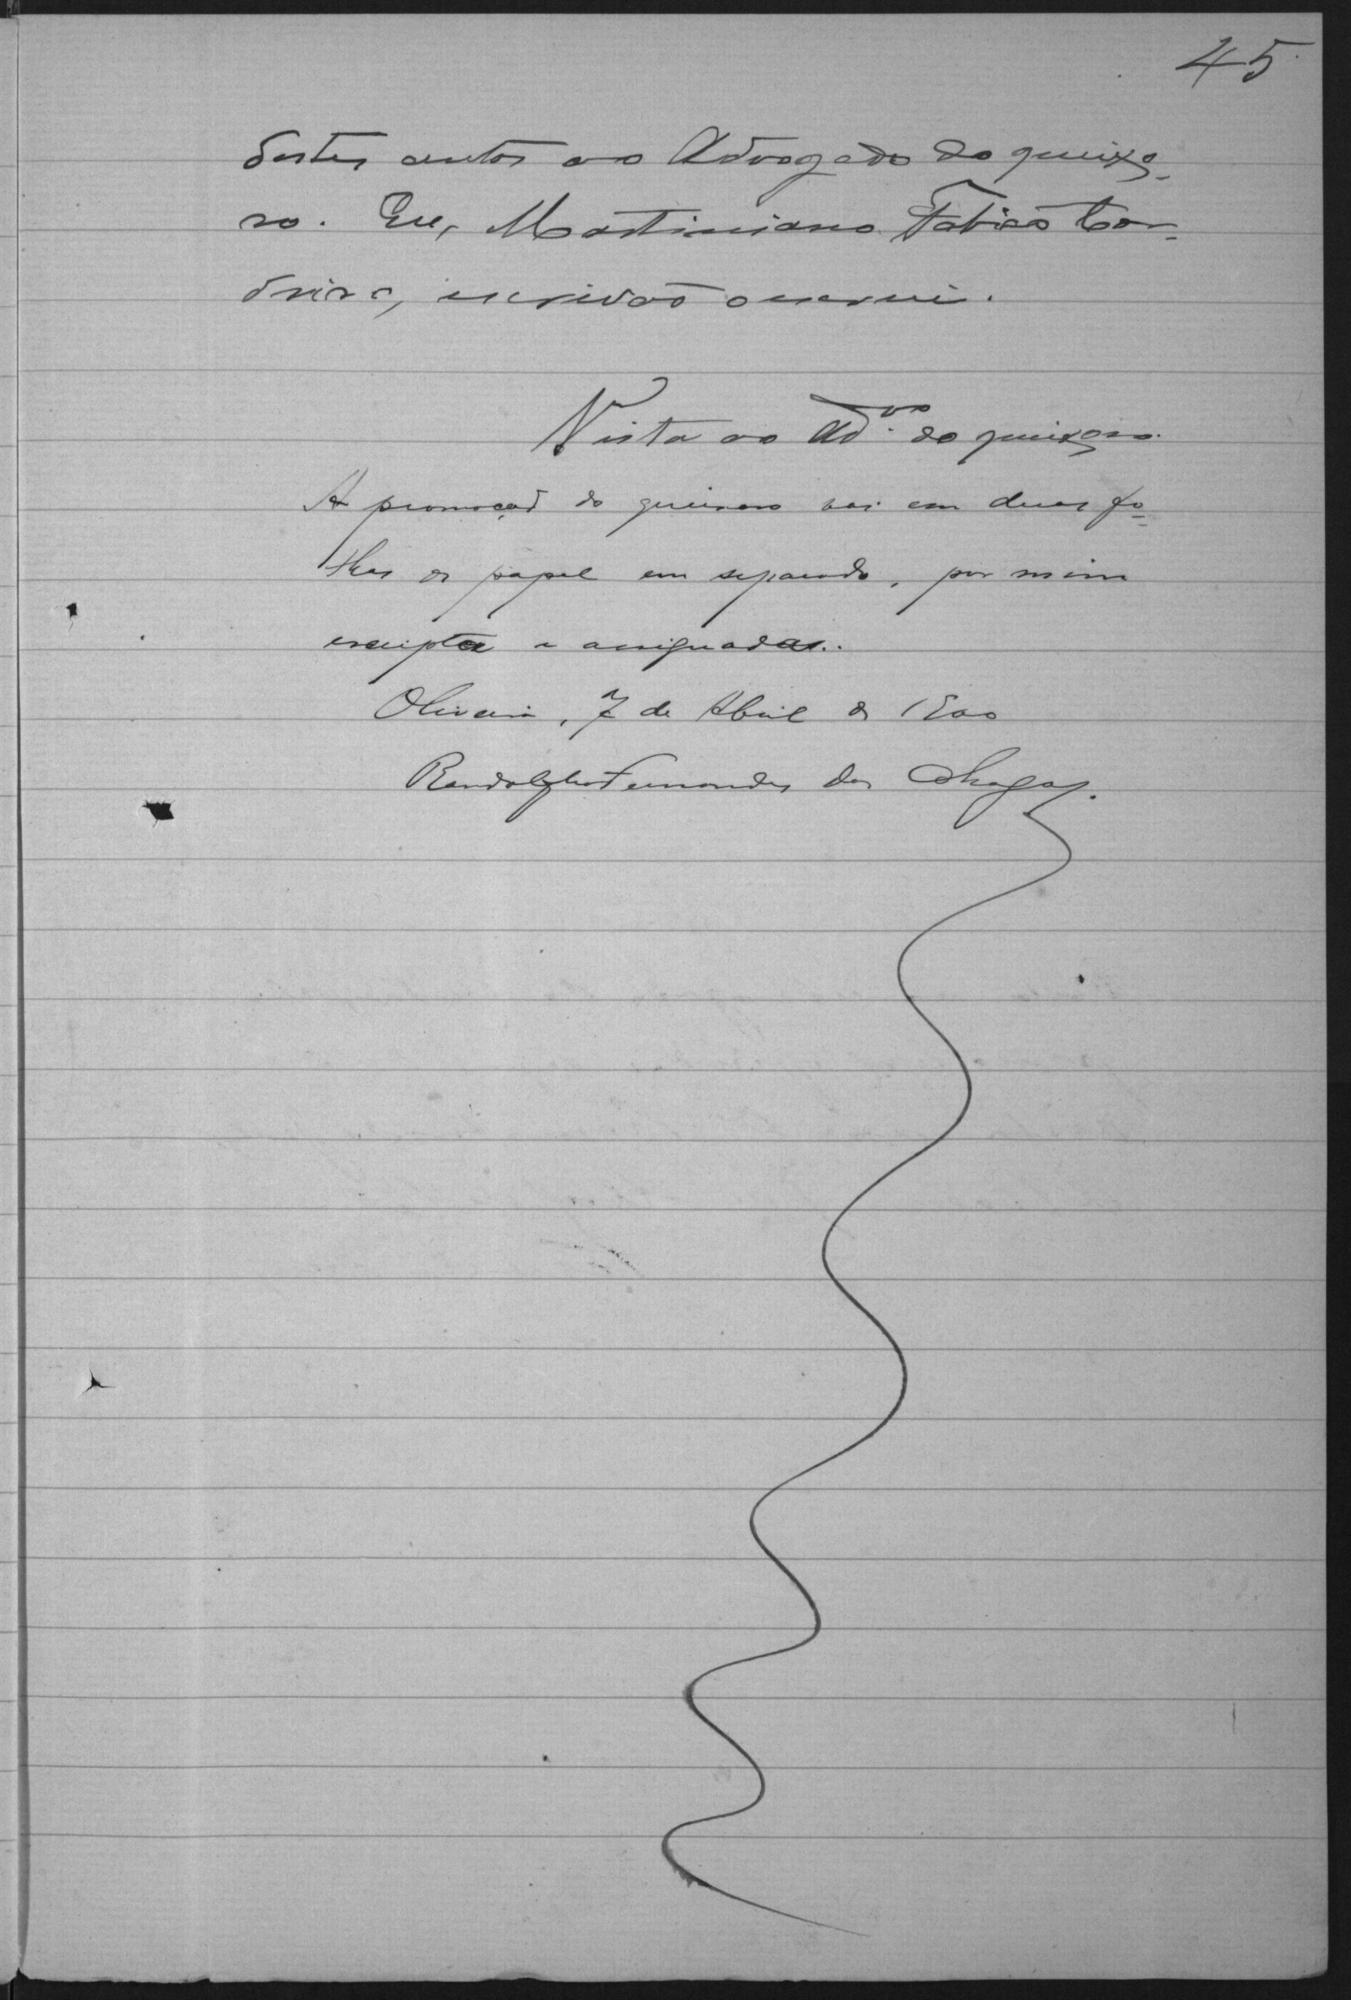 45
destes autos ao Advogado do queixo-
so. Eu, Martiniano Fabião Cor-
deiro, escrivão o escrevi.
Vista ao Ad.vo do queixoso.
A promoção do queixoso vai em duas fo-
lhas de papel em separado, por mim
escripta e assignadas.
Oliveira, 7 de Abril de 1800
Randolpho Fernandes das Chagas.